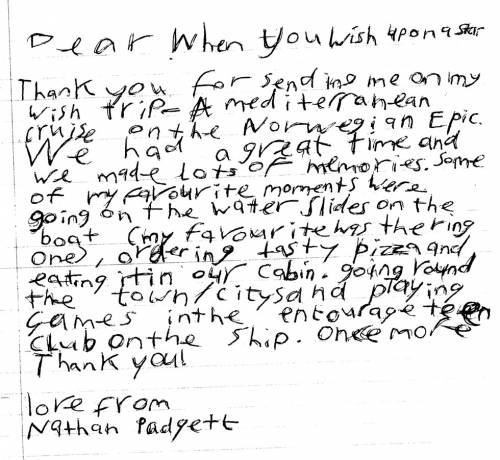 Dear When you wish upon a star
Thank you for sending me on my
wish trip- A mediterranean
cruise on the Norwegian Epic.
We had a great time and
we made lots of memories. Some
of my favourite moments were
going on the water slides on the
boat (my favourite was the ring
one), ordering tasty pizza and
eating it in our cabin. going round
the town/citys and playing
games in the entourage teen
club on the ship. Once more
Thank you!
love from
Nathan Padgett